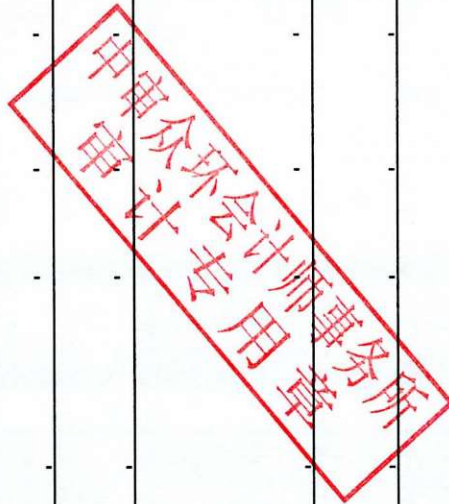 中审众环会计师事务所
审计专用章